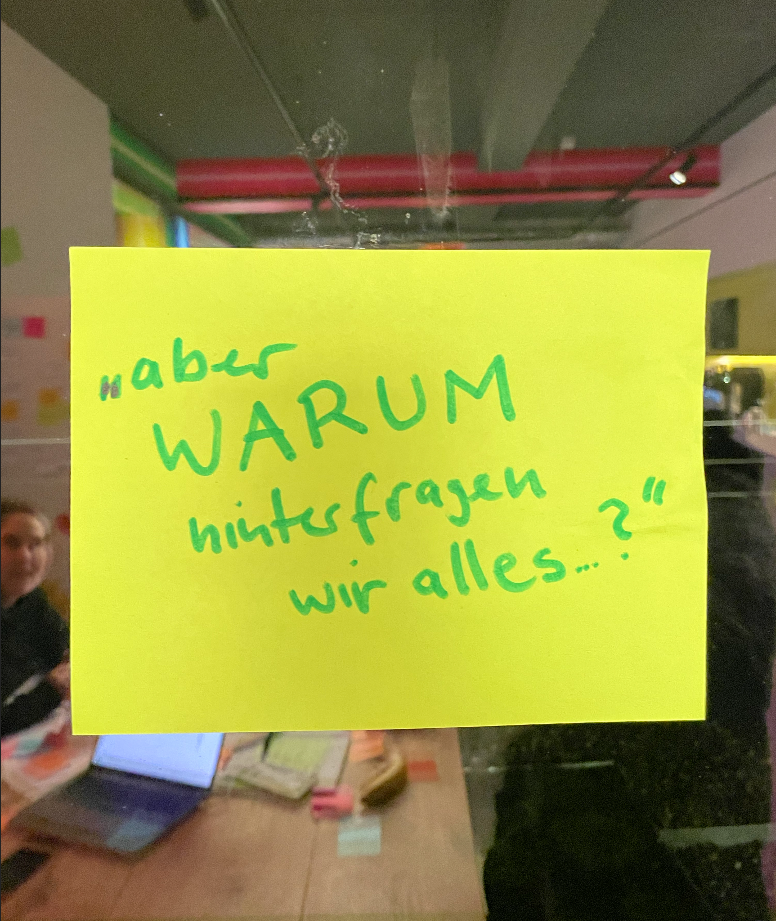 „aber
WARUM
hinterfragen
wir alles...?“